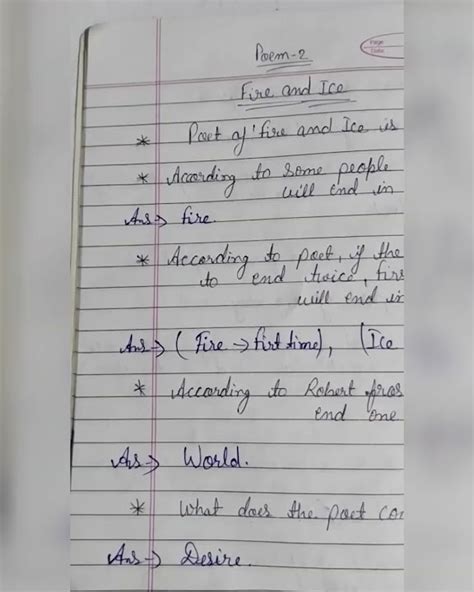 Page
Date
Poem-2
Fire and Ice
* Poet of 'fire and Ice is
* According to some people
will end in
Ans → fire.
* According to poet, if the
to end twice, firs
will end in
Ans → (Fire → firt time), (Ice
* According to Robert fros
end one
Ans → World.
* What does the poet con
Ans → Desire.